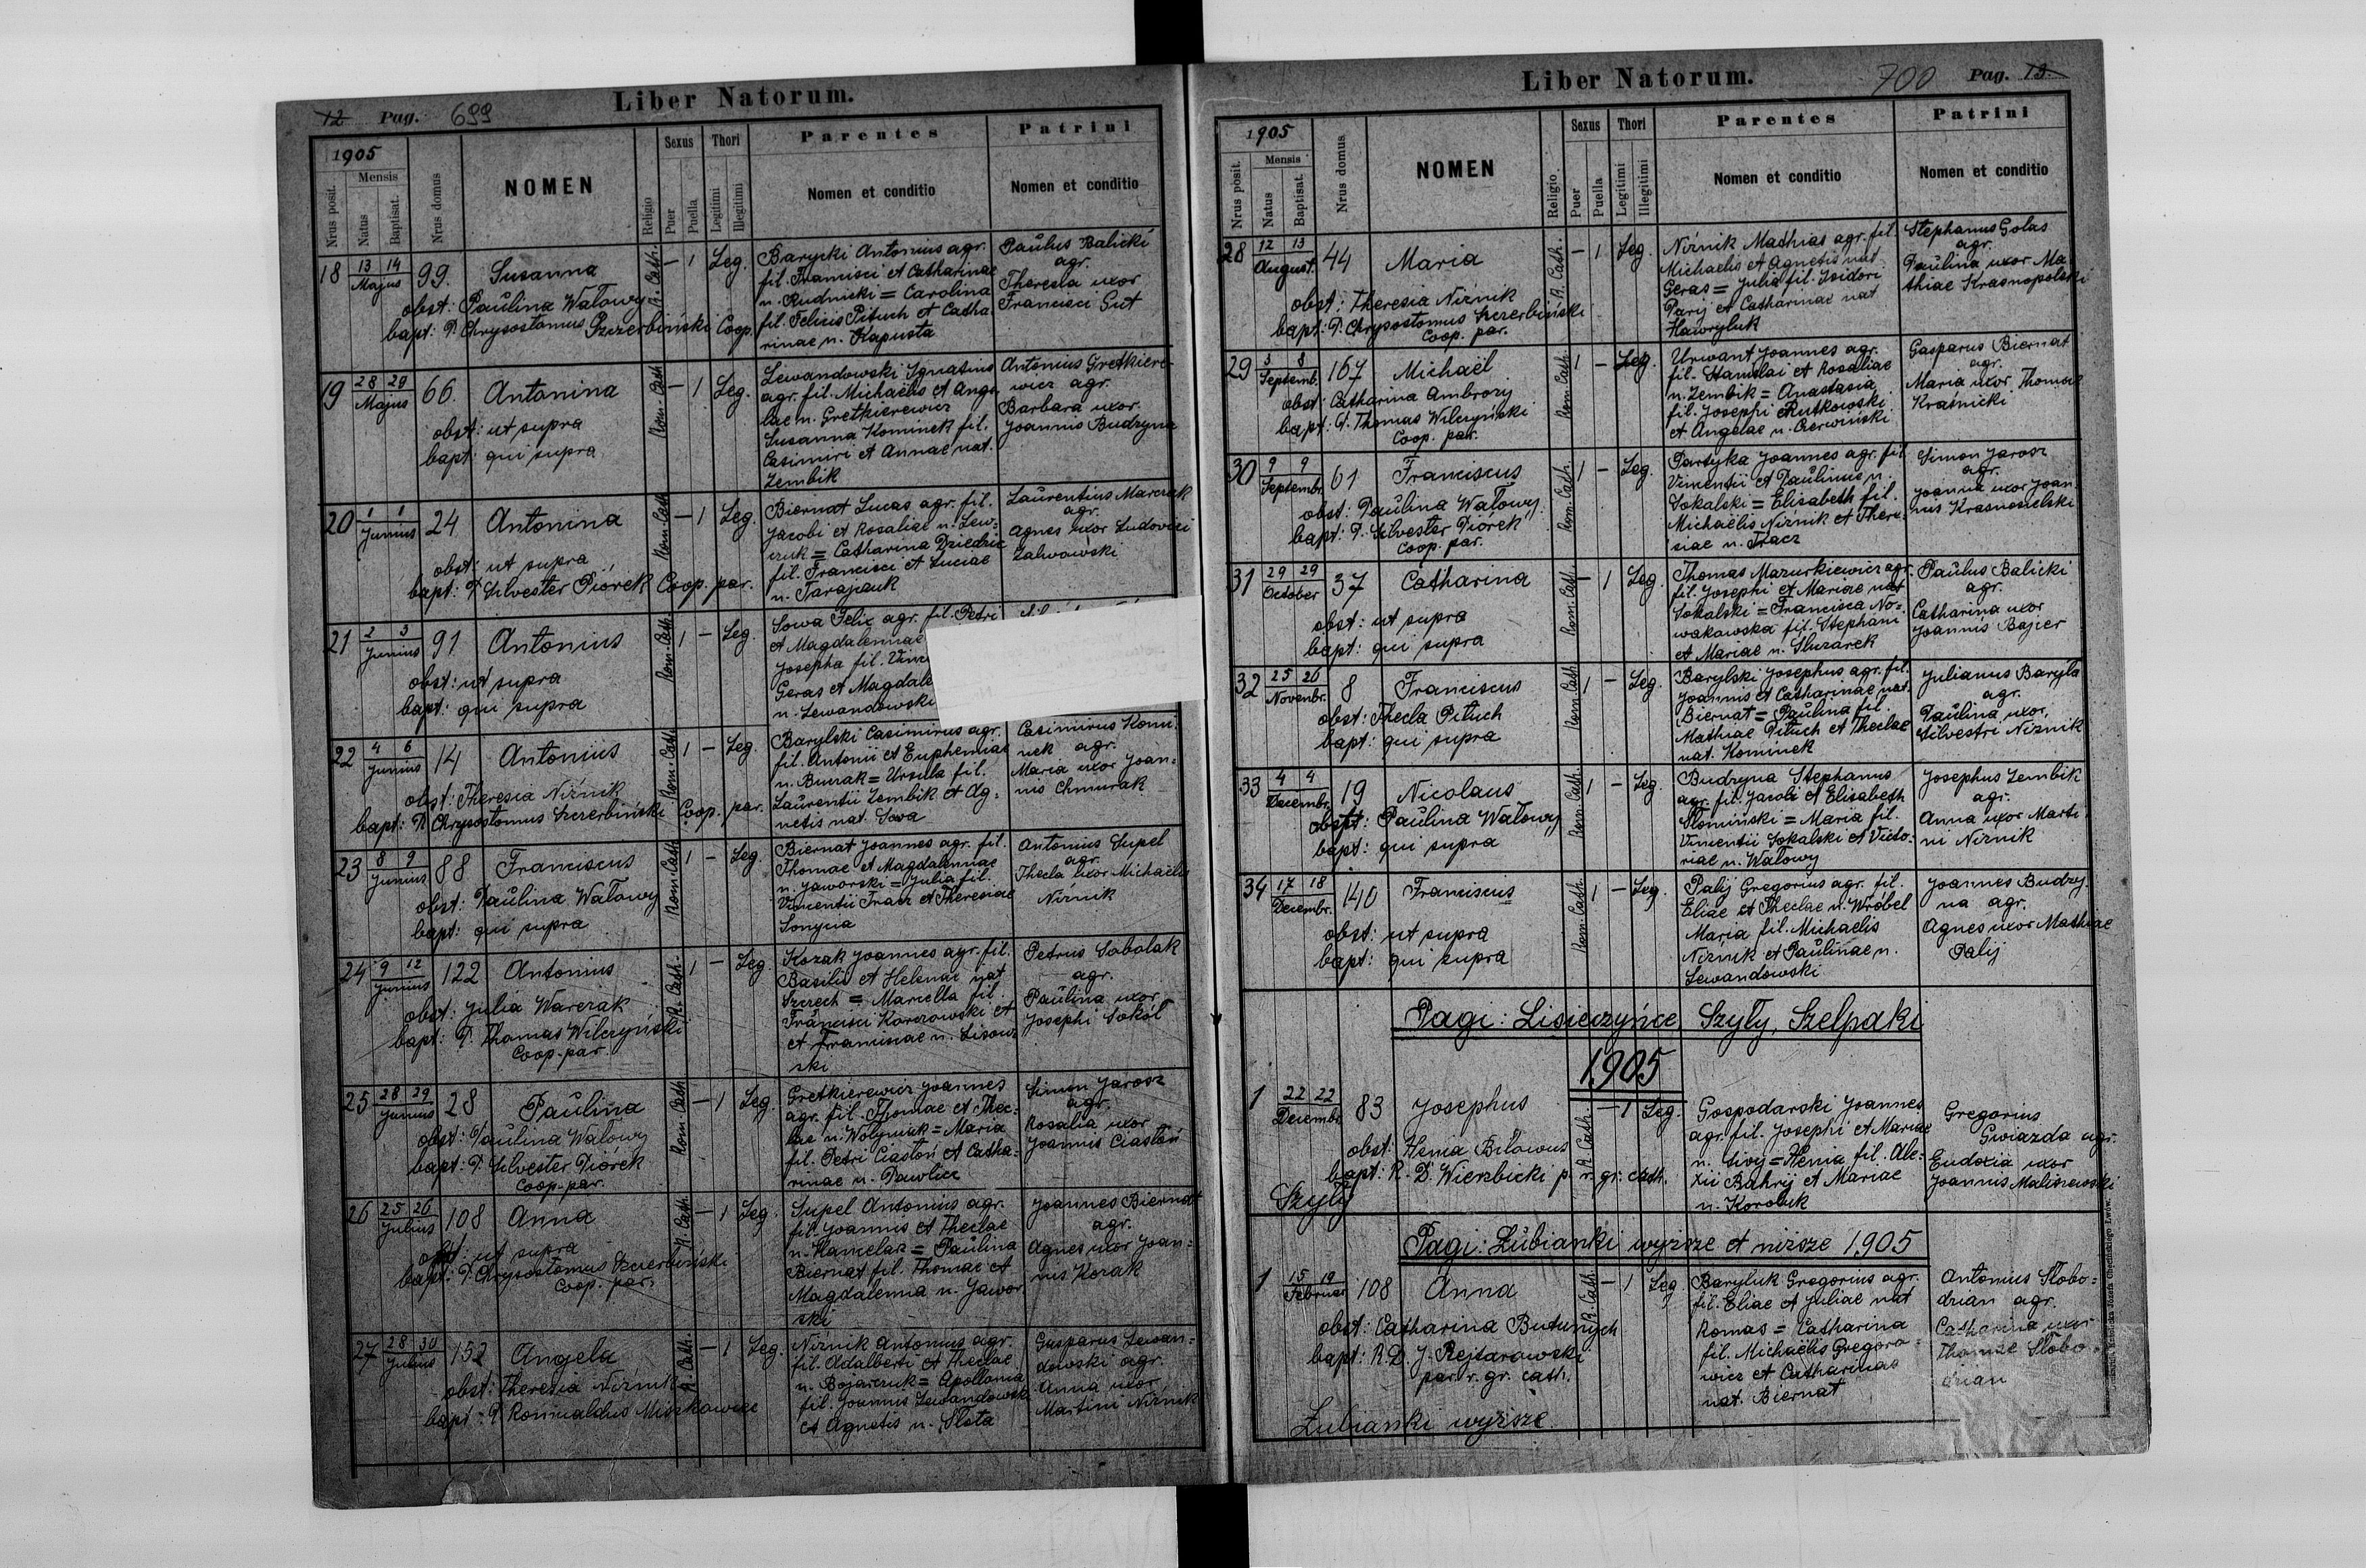 12 Pag. 699
Liber Natorum.
1905
Nrus posit.
Mensis
Natus
Baptisat.
Nrus domus
NOMEN
Religio
Sexus
Puer
Puella
Thori
Legitimi
Illegitimi
Parentes
Nomen et conditio
Patrini
Nomen et conditio
18 13 14 Majus 99. Susanna R. Cath. – 1 Leg.
obst: Paulina Wałowy
bapt: P. Chrysostomus Szczerbiński Coop.
Barycki Antonius agr.
fil. Francisci et Catharinae
n. Rudnicki = Carolina
fil. Felicis Pituch et Catha
rinae n. Kapusta
Paulus Balicki
agr.
Theresia uxor
Francisci Gut
19 28 29 Majus 66. Antonina Rom. Cath. – 1 Leg.
obst: ut supra
bapt: qui supra
Lewandowski Ignatius
agr. fil. Michaëlis et Ange
lae n. Gretkierewicz
Susanna Kominek fil.
Casimiri et Annae nat.
Zembik
Antonius Gretkiere-
wicz agr.
Barbara uxor
Joannis Budzyna
20 1 1 Junius 24 Antonina Rom. Cath. – 1 Leg.
obst: ut supra
bapt: P. Silvester Piórek Coop. par.
Biernat Lucas agr. fil.
Jacobi et Rosaliae n. Lew=
czuk = Catharina Dziedzic
fil. Francisci et Luciae
n. Tarajczuk
Laurentius Marczak
agr.
Agnes uxor Ludovici
Zalwowski
21 2 3 Junius 91 Antonius Rom. Cath. 1 – Leg.
obst: ut supra
bapt: qui supra
Sowa Felix agr. fil. Petri
et Magdalennae
Josepha fil.
Geras et
n. Lewandowski
22 4 6 Junius 14 Antonius Rom. Cath. 1 – Leg.
obst: Theresia Niżnik
bapt: P. Chrysostomus Szczerbiński Coop. par.
Barylski Casimirus agr.
fil. Antonii et Euphemiae
n. Burak = Ursula fil.
Laurentii Zembik et Ag=
netis nat. Sowa
Casimirus Komi
nek agr.
Maria uxor Joan=
nis Chmurak
23 8 9 Junius 88 Franciscus Rom. Cath. 1 – Leg.
obst: Paulina Wałowy
bapt: qui supra
Biernat Joannes agr. fil.
Thomae et Magdalennae
n. Jaworski = Julia fil.
Vincentii Tracz et Theresiae
Sonyna
Antonius Supel
agr.
Thecla uxor Michaëlis
Niżnik
24 9 12 Junius 122 Antonius R. Cath. 1 – Leg.
obst: Julia Warczak
bapt: P. Thomas Wilczyński
Coop. par.
Kozak Joannes agr. fil.
Basilii et Helenae nat
Szczech = Marcella fil.
Francisci Karczowski et
et Franciscae n. Lisow=
ski
Petrus Sobolak
agr.
Paulina uxor
Josephi Sokół
25 28 29 Junius 28 Paulina Rom. Cath. – 1 Leg.
obst: Paulina Wałowy
bapt: P. Silvester Piórek
Coop. par.
Gretkierewicz Joannes
agr. fil. Thomae et Thec=
lae n. Wołyniak = Maria
fil. Petri Ciastoń et Catha=
rinae n. Pawlicz
Simon Jarosz
agr.
Rosalia uxor
Joannis Ciastoń
26 25 26 Julius 108 Anna R. Cath. – 1 Leg.
obst: ut supra
bapt: P. Chrysostomus Szczerbiński
Coop. par.
Supel Antonius agr.
fil. Joannis et Theclae
n. Hamelak = Paulina
Biernat fil. Thomae et
Magdalenna n. Jawor
ski
Joannes Biernat
agr.
Agnes uxor Joan=
nis Kozak
27 28 30 Julius 152 Angela R. Cath. – 1 Leg.
obst: Theresia Niżnik
bapt: P. Romualdus Miszkowicz
Niżnik Antonius agr.
fil. Adalberti et Theclae
n. Bojarczuk = Apollonia
fil. Joannis Lewandowski
et Agnetis n. Słota
Gasparus Lewan=
dowski agr.
Anna uxor
Martini Niżnik
Liber Natorum.
700 Pag. 13.
1905
Nrus posit.
Mensis
Natus
Baptisat.
Nrus domus
NOMEN
Religio
Sexus
Puer
Puella
Thori
Legitimi
Illegitimi
Parentes
Nomen et conditio
Patrini
Nomen et conditio
28 12 13 August. 44 Maria R. Cath. – 1 Leg.
obst: Theresia Niżnik
bapt: P. Chrysostomus Szczerbiński
Coop. par.
Niżnik Mathias agr. fil
Michaëlis et Agnetis nat
Geras = Julia fil. Isidori
Parij et Catharinae nat
Hawryluk
Stephanus Golas
agr.
Paulina uxor Ma
thiae Krasnopolski
29 3 8 Septemb. 167 Michaël Rom. Cath. 1 – Leg.
obst: Catharina Ambroży
bapt: P. Thomas Wilczyński
Coop. par.
Urwant Joannes agr.
fil. Stanislai et Rosaliae
n. Zembik = Anastasia
fil. Josephi Rutkowski
et Angelae n. Czerwiński
Gasparus Biernat
agr.
Maria uxor Thomae
Kraśnicki
30 9 9 Septembr. 61 Franciscus Rom. Cath. 1 – Leg.
obst: Paulina Wałowy.
bapt: P. Silvester Piórek
Coop. par.
Partyka Joannes agr. fil
Vincentii et Paulinae n.
Sokalski = Elisabeth fil.
Michaëlis Niżnik et There=
siae n. Tracz
Simon Jarosz
agr.
Joanna uxor Joan
nis Krasnosielski
31 29 29 October 37 Catharina Rom. Cath. – 1 Leg.
obst: ut supra
bapt: qui supra
Thomas Mazurkiewicz agr.
fil. Josephi et Mariae nat
Sokalski = Francisca No=
wakowska fil. Stephani
et Mariae n. Sluzarek
Paulus Balicki
agr.
Catharina uxor
Joannis Bajer
32 25 26 Novembr. 8 Franciscus Rom. Cath. 1 – Leg.
obst: Thecla Pituch
bapt: qui supra
Barylski Josephus agr. fil.
Joannis et Catharinae nat.
Biernat = Paulina fil.
Mathiae Pituch et Theclae
nat. Kominek
Julianus Baryła
agr.
Paulina uxor
Silvestri Niżnik
33 4 4 Decembr. 19 Nicolaus Rom. Cath. 1 – Leg.
obst: Paulina Wałowy
bapt: qui supra
Budzyna Stephanus
agr. fil. Jacobi et Elisabeth
Słomiński = Maria fil.
Vincentii Sokalski et Victo=
riae n. Wałowy
Josephus Zembik
agr.
Anna uxor Marti
ni Niżnik
34 17 18 Decembr. 140 Franciscus Rom. Cath. 1 – Leg.
obst: ut supra
bapt: qui supra
Palij Gregorius agr. fil.
Eliae et Theclae n. Wróbel
Maria fil. Michaëlis
Niżnik et Paulinae n.
Lewandowski
Joannes Budzy
na agr.
Agnes uxor Mathiae
Palij
Pagi: Lisieczyńce Szyły, Szelpaki
1905
1 22 22 Decembr. 83 Josephus R. Cath. – 1 Leg.
obst: Xenia Biłowus
bapt: R. D. Wierzbicki p. r. gr. cath.
Szyły
Gospodarski Joannes
agr. fil. Josephi et Mariae
n. Siwy = Xenia fil. Ale=
xii Bahrij et Mariae
n. Koroluk
Gregorius
Gwiazda agr.
Eudoxia uxor
Joannis Maliszewski
Pagi: Łubianki wyższe et niższe 1905
1 15 19 Februar. 108 Anna R. Cath. – 1 Leg
obst: Catharina Butunych
bapt: R. D. J. Rejtarowski
par. r. gr. cath.
Łubianki wyższe
Baryluk Gregorius agr.
fil. Eliae et Juliae nat
Romas = Catharina
fil. Michaëlis Gregoro=
wicz et Catharinae
nat. Biernat
Antonius Słobo=
drian agr.
Catharina uxor
Thomae Słobo=
drian